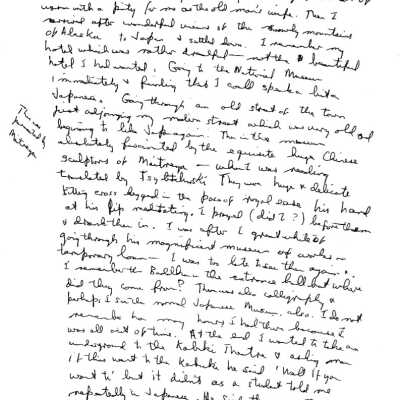 worn with a pity for me as the old man's wife. Then I
arrived after wonderful views of the snowy mountains
of Alaska to Japan & settled down. I remember my
hotel which was rather dreadful – not the beautiful
hotel I had wanted. Going to the National Museum
immediately & finding that I could speak a bit
Japanese. Going through an old street of the town
just adjoining my modern street which was very old and
beginning to like Japan again. Then in the museum
absolutely fascinated by the exquisite huge Chinese
sculptures of Maitreya – when I was reading
translated by They were huge & delicate
sitting cross legged in the pose of royal ease his hand
at his lip meditating. I prayed (did I?) before them
& drank them in. I was after I
going through his magnificent museum of works on
temporary loan – I was to see them again.
I remember the in the entrance hall but where
did they come from? There was also calligraphy &
perhaps I saw the normal Japanese Museum also. I do not
remember how many hours I had there because I
was all out of time. At the end I wanted to take an
underground to the Kabuki Theatre & asking man
if this went to the Kabuki he said 'Well if you
want to' but it didn't as a student told me
repeatedly in Japanese. He said the
This was
translated by
Maitreya